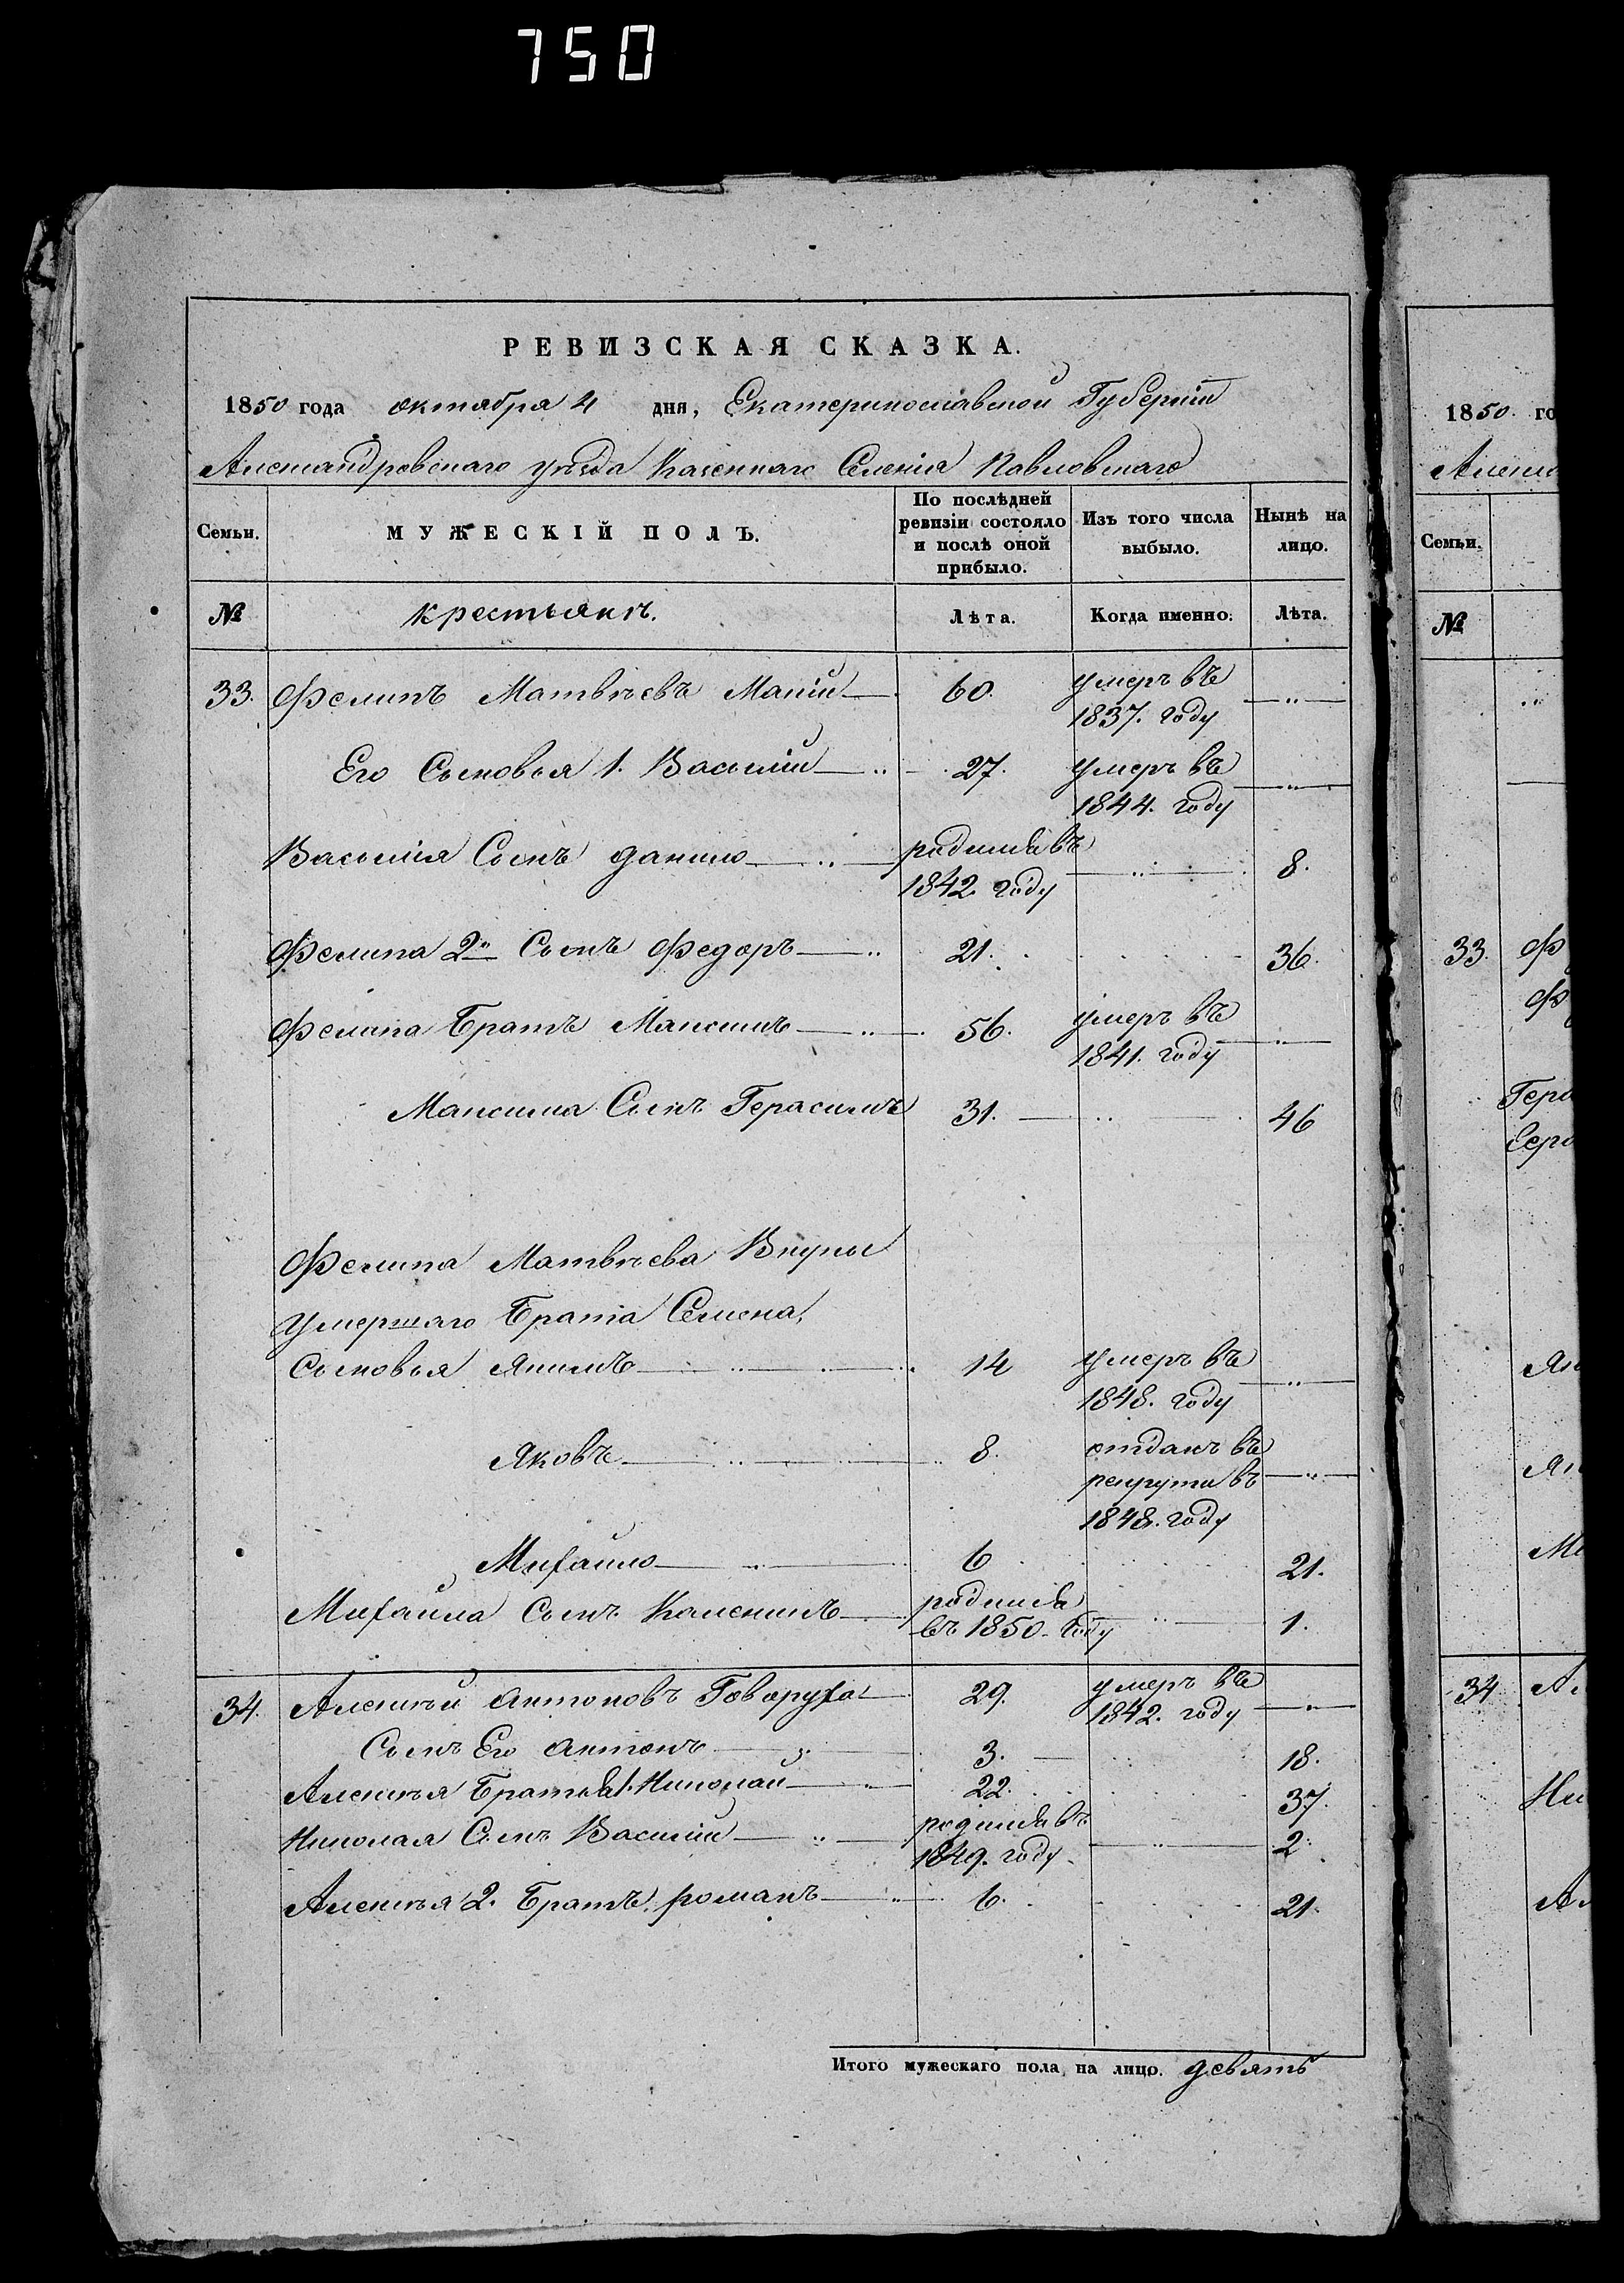 750
РЕВИЗСКАЯ СКАЗКА.
1850 года октября 4 дня, Екатеринославской Губерніи
Александровскаго уѣзда Казеннаго Селенія Павловскаго
Семьи.
МУЖЕСКІЙ ПОЛЪ.
По послѣдней ревизіи состояло и послѣ оной прибыло.
Изъ того числа выбыло.
Нынѣ на лицо.
№
крестьянъ.
Лѣта.
Когда именно.
Лѣта.
33. Филипъ Матвѣевъ 60. умеръ въ 1837. году
Его Сыновья 1. Василій 27. умеръ въ 1844. году
Василія Сынъ Данило родился въ 1842. году 8.
Филипа 2й Сынъ Федоръ 21. 36.
Филипа Братъ Максимъ 56. умеръ въ 1841. году
Максима Сынъ Герасимъ 31. 46
Филипа Матвѣева Внуки
умершаго Брата Семена,
Сыновья Якимъ 14 умеръ въ 1848. году
Яковъ 8. отданъ въ рекруты въ 1848. году
Михайло 6 21.
Михайла Сынъ родился въ 1850. году 1.
34. Алексѣй Антоновъ Говоруха 29. умеръ въ 1842. году
Сынъ Его Антонъ 3. 18.
Алексѣя Братья 1. Николай 22. 37.
Николая Сынъ Василій родился въ 1849. году 2.
Алексѣя 2. Братъ романъ 6. 21.
Итого мужескаго пола на лицо. девять
1850. го
Семьи.
№
33. Ф
Ф
Гера
34 Ал
Ни